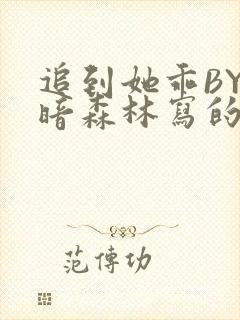 追到她乖BY
暗森林寫的
范傳功